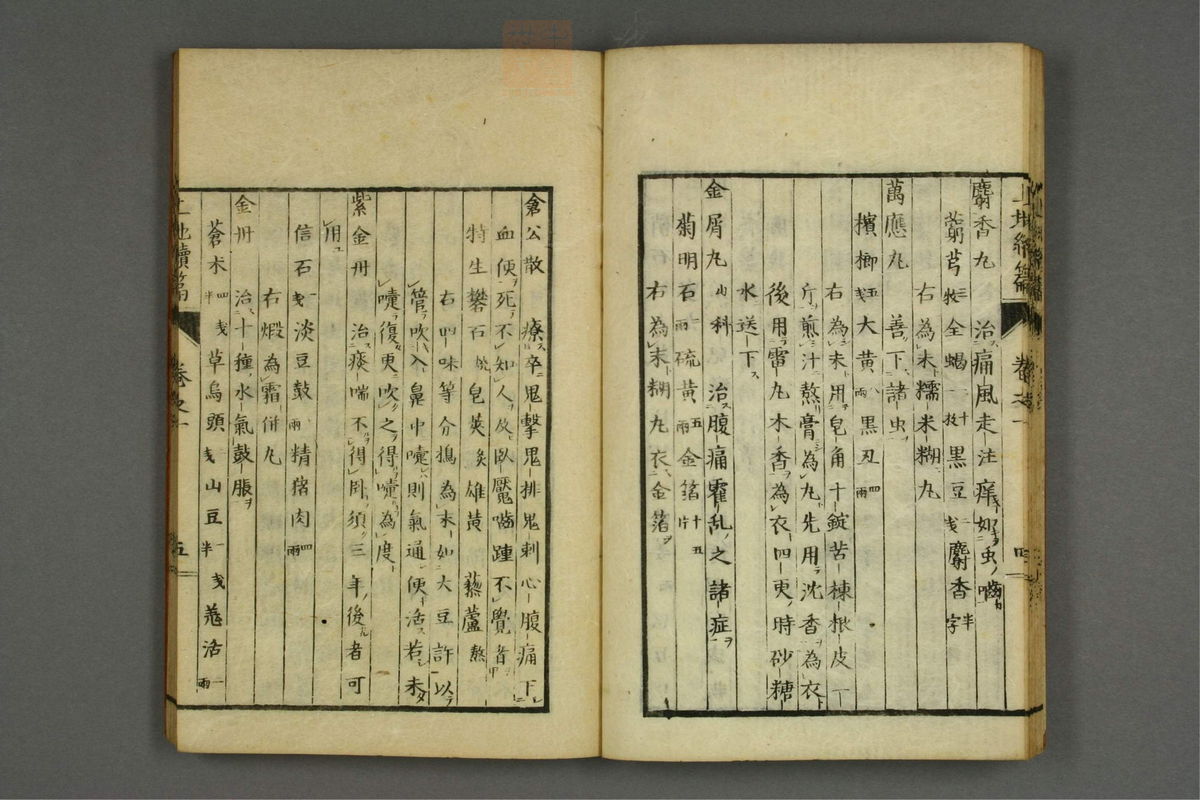 麝香丸　治痛風走注痒如虫嚙
藭芎三枚全蝎二十一枚黒豆二戔麝香半字
右為末糯米糊丸
萬應丸　善下諸虫
檳榔五戔大黄八兩黒丑四兩
右為末用皂角十錠苦楝根皮一
斤煎汁熬膏為丸先用沈香為衣
後用雷丸木香為衣四更時砂糖
水送下
金屑丸　内科　治腹痛霍乱之諸症
菊明石一兩硫黄五兩金箔十五片
右為末糊丸衣金箔
倉公散　療卒鬼擊鬼排鬼刺心腹痛下
血便死不知人及臥魘嚙踵不覺者
特生礬石燒皂莢炙雄黄　藜蘆熬
右四味等分搗為末如大豆許以
管吹入鼻中嚏則氣通便活若未
嚏復更吹之得嚏為度
紫金丹　治痰喘不得卧須三年後者可
用
信石一戔淡豆鼓一兩精猪肉四兩
右煅為霜併丸
金丹　治十種水氣鼓脹
蒼朮四戔半草烏頭一戔山豆一戔半羗活一兩
卷之一
五